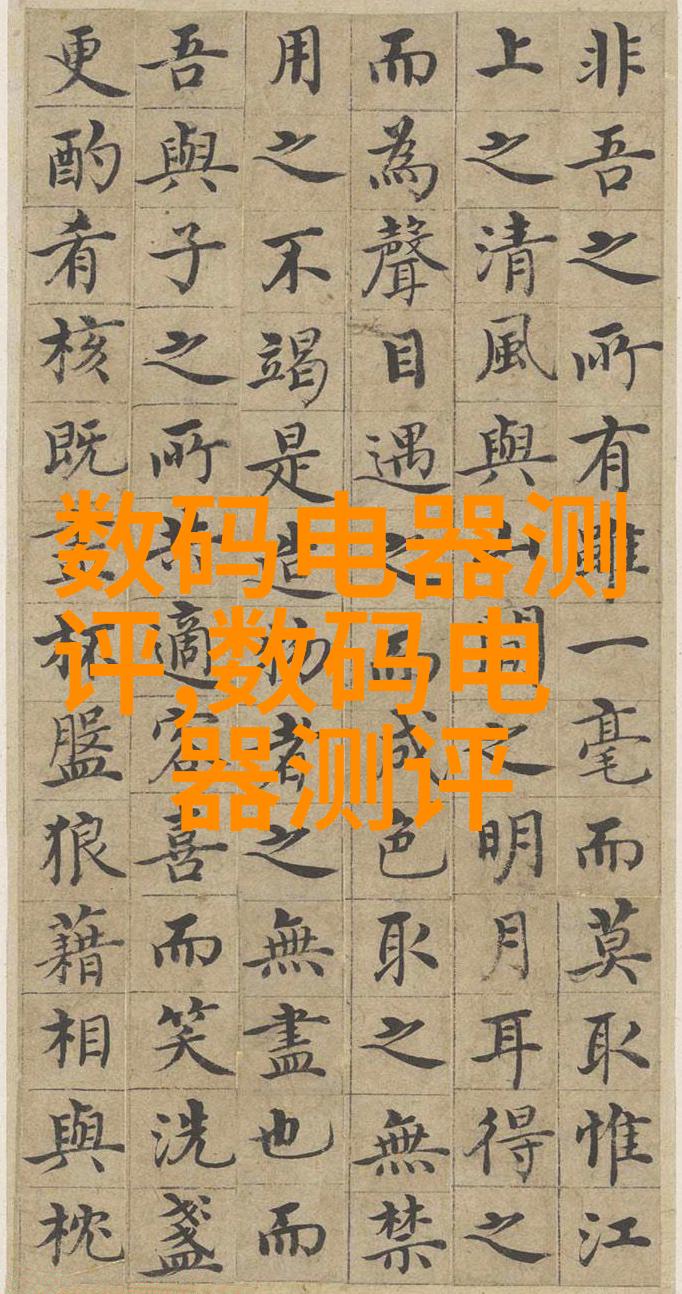 非吾之所有雖一毫而莫取惟江
上之清風與山間之明月耳得之
而為聲目遇之而成色取之無禁
用之不竭是造物者之無盡也而
吾與子之所共適客喜而笑洗盞
更酌肴核既盡杯盤狼藉相與枕
数码电器测
评,数码电
器测评